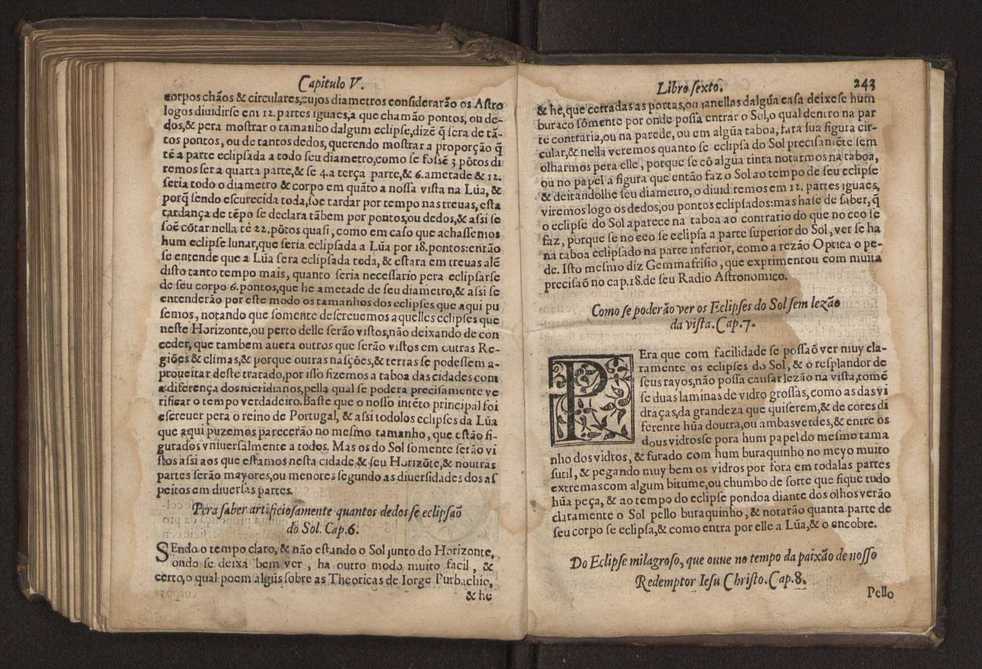 Capitulo V.
corpos chãos & circulares, cujos diametros considerarão os Astro
logos diuidirse em 12. partes iguaes, a que chamão pontos, ou de-
dos, & pera mostrar o tamanho dalgum eclipse, dizẽ q̃ sera de tã-
tos pontos, ou de tantos dedos, querendo mostrar a proporção q̃
tẽ a parte eclipsada a todo seu diametro, como se fosse 3 põtos di
remos ser a quarta parte, & se 4. a terça parte, & 6. ametade & 12.
seria todo o diametro & corpo em quãto a nossa vista na Lũa, &
porq̃ sendo escurecida toda, soe tardar por tempo nas treuas, esta
tardança de tẽpo se declara tãbem por pontos, ou dedos, & assi se
soẽ cõtar nella tẽ 22. põtos quasi, como em caso que achassemos
hum eclipse lunar, que seria eclipsada a Lũa por 18. pontos: então
se entende que a Lũa sera eclipsada toda, & estara em treuas alẽ
disto tanto tempo mais, quanto seria necessario pera eclipsarse
de seu corpo 6. pontos, que he ametade de seu diametro, & assi se
entenderão por este modo os tamanhos dos eclipses que aqui pu
semos, notando que somente descreuemos aquelles eclipses que
neste Horizonte, ou perto delle serão vistos, não deixando de con
ceder, que tambem auera outros que serão vistos em outras Re-
giões & climas, & porque outras nasções, & terras se podessem a-
proueitar deste tratado, por isso fizemos a taboa das cidades com
a diferença dos meridianos, pella qual se podera precisamente ve
rificar o tempo verdadeiro. Baste que o nosso intẽto principal foi
escreuer pera o reino de Portugal, & assi todolos eclipses da Lũa
que aqui puzemos parecerão no mesmo tamanho, que estão fi-
gurados vniuersalmente a todos. Mas os do Sol somente serão vi
stos assi aos que estamos nesta cidade & seu Horizõte, & noutras
partes serão mayores, ou menores segundo as diuersidades dos as
peitos em diuersas partes.
Pera saber artificiosamente quantos dedos se eclipsaõ
do Sol. Cap. 6.
SEndo o tempo claro, & não estando o Sol junto do Horizonte,
onde se deixa bem ver, ha outro modo muito facil, &
certo, o qual poem algũs sobre as Theoricas de Iorge Purbachio,
& he
Libro sexto. 243
& he, que cerradas as portas, ou janellas dalgũa casa deixese hum
buraco sómente por onde possa entrar o Sol, o qual dentro na par
te contraria, ou na parede, ou em algũa taboa, fara sua figura cir-
cular, & nella veremos quanto se eclipsa do Sol precisamẽte sem
olharmos pera elle, porque se cõ algũa tinta notarmos na taboa,
ou no papel a figura que então faz o Sol ao tempo de seu eclipse
& deitandolhe seu diametro, o diuidiremos em 12. partes iguaes,
viremos logo os dedos, ou pontos eclipsados: mas hase de saber, q̃
o eclipse do Sol aparece na taboa ao contrario do que no ceo se
faz, porque se no ceo se eclipsa a parte superior do Sol, ver se ha
na taboa eclipsado na parte inferior, como a rezão Optica o pe-
de. Isto mesmo diz Gemmafrisio, que exprimentou com muita
precisaõ no cap. 18. de seu Radio Astronomico.
Como se poderão ver os Eclipses do Sol sem lezão
da vista. Cap. 7.
PEra que com facilidade se possaõ ver muy cla-
ramente os eclipses do Sol, & o resplandor de
seus rayos, não possa causar lezão na vista, tomẽ
se duas laminas de vidro grossas, como as das vi
draças, da grandeza que quiserem, & de cores di
ferente hũa doutra, ou ambas verdes, & entre os
dous vidros se pora hum papel do mesmo tama
nho dos vidros, & furado com hum buraquinho no meyo muito
sutil, & pegando muy bem os vidros por fora em todalas partes
extremas com algum bitume, ou chumbo de sorte que fique tudo
hũa peça, & ao tempo do eclipse pondoa diante dos olhos verão
claramente o Sol pello buraquinho, & notarão quanta parte de
seu corpo se eclipsa, & como entra por elle a Lũa, & o encobre.
Do Eclipse milagroso, que ouue no tempo da paixão de nosso
Redemptor Iesu Christo. Cap. 8.
Pello